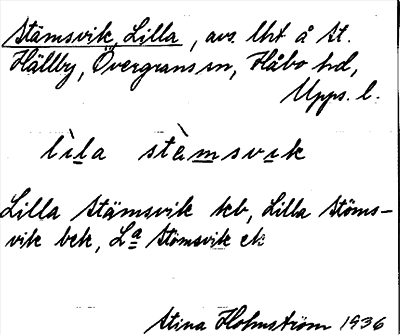 Stämsvik, Lilla, avs. lht å St.
Hällby, Övergrans sn, Håbo hd,
Upps. l.
lìla stämsvik
Lilla Stämsvik kb, Lilla Stöms-
vik bek, La Stömsvik ek
Stina Holmström 1936